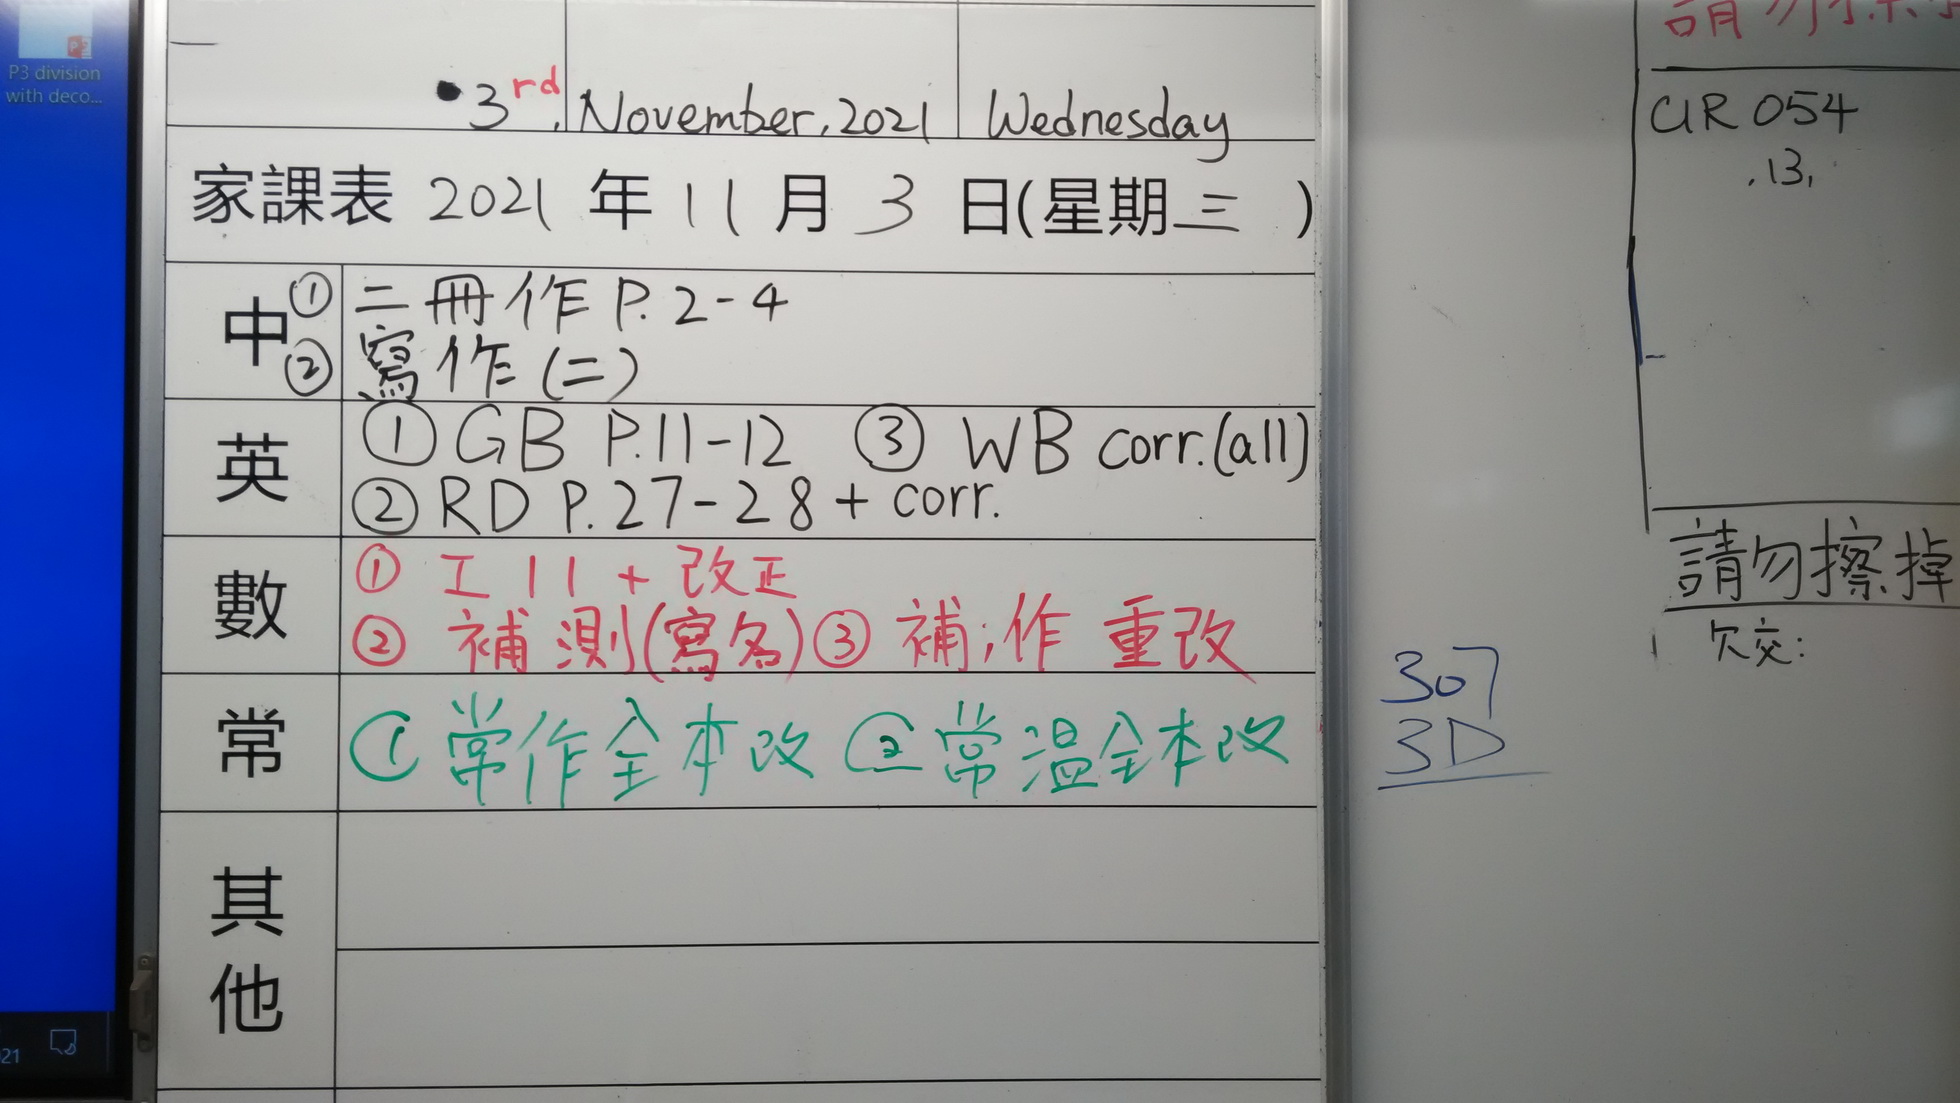 P3 division
with deco...
3rd, November, 2021 Wednesday
家課表 2021 年 11 月 3 日(星期三 )
中 ① 二冊作 P. 2-4
② 寫作 (二)
英 ① GB P.11-12 ③ WB corr.(all)
② RD P.27-28 + corr.
數 ① 工 11 + 改正
② 補測(寫名) ③ 補;作 重改
常 ① 常作全本改 ② 常溫全本改
其他
21
307
3D
請勿擦
054
13,
請勿擦掉
欠交: